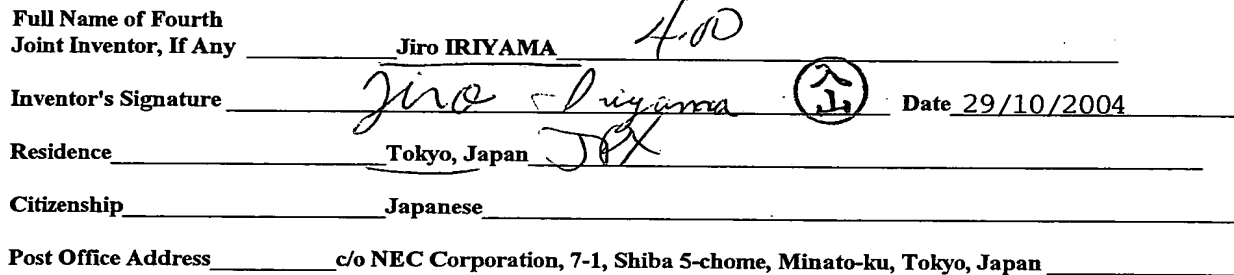 Full Name of Fourth
Joint Inventor, If Any Jiro IRIYAMA 4.00
Inventor's Signature Jiro Iriyama 入山 Date 29/10/2004
Residence Tokyo, Japan JPX
Citizenship Japanese
Post Office Address c/o NEC Corporation, 7-1, Shiba 5-chome, Minato-ku, Tokyo, Japan